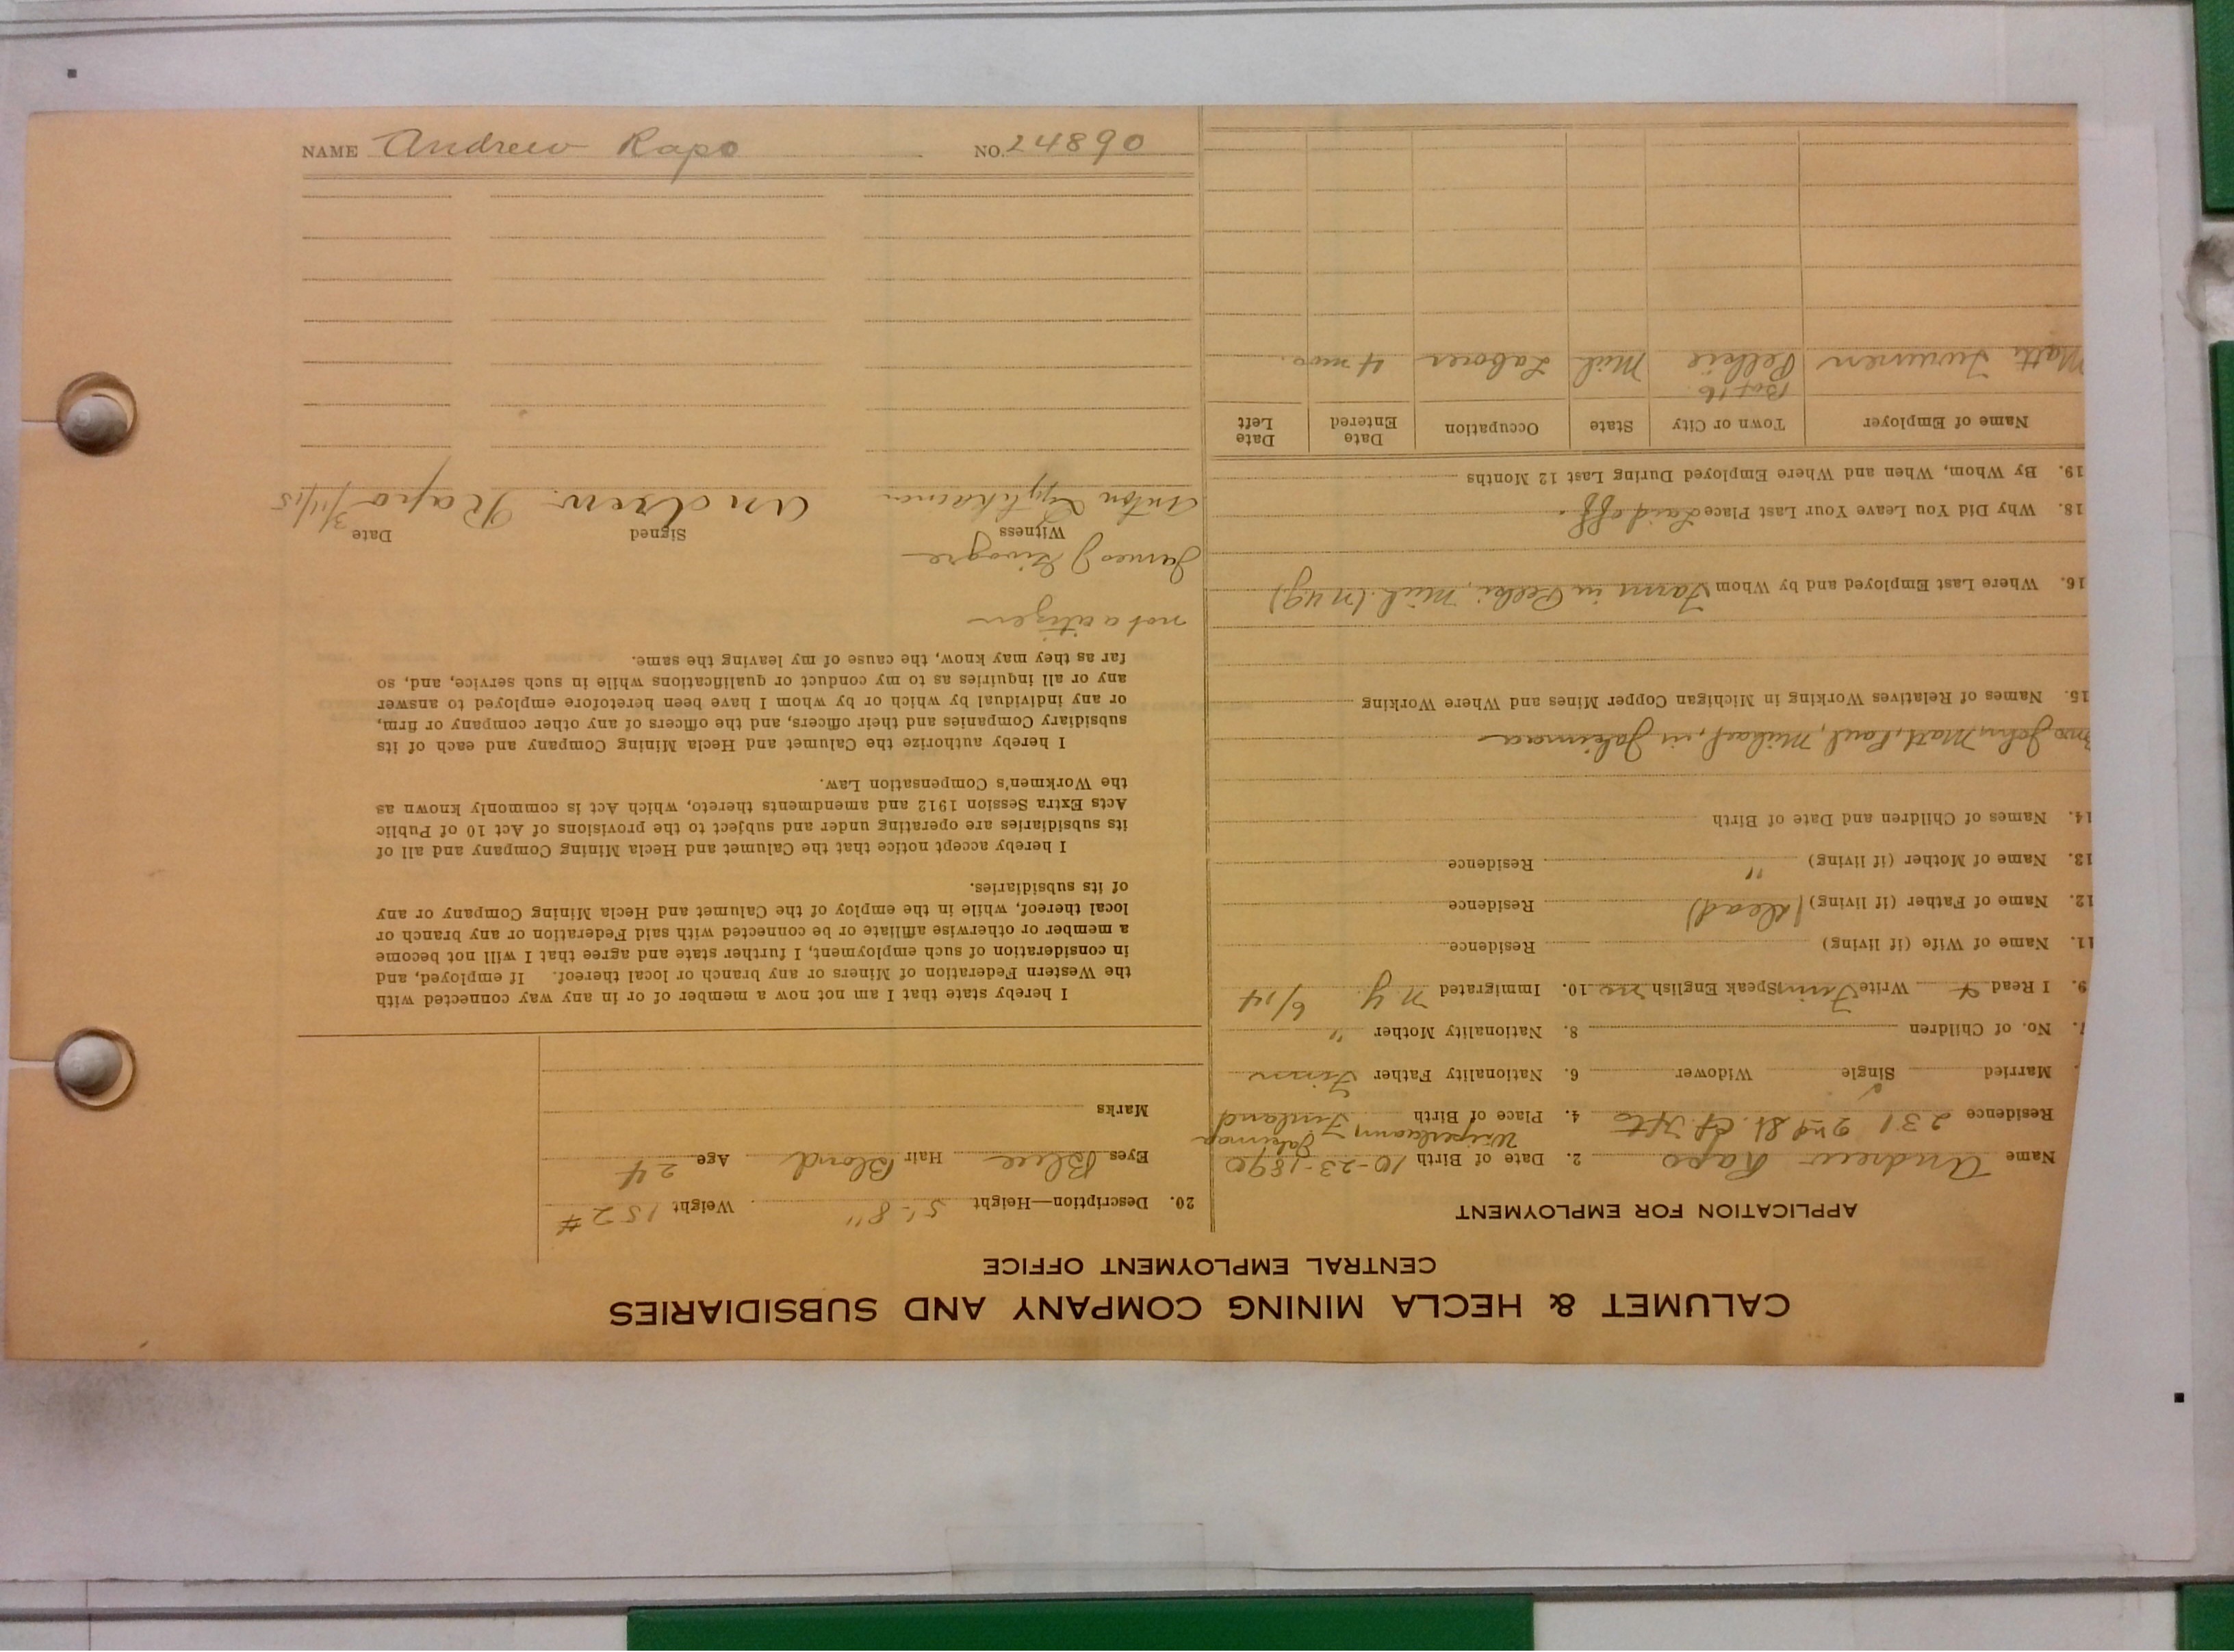 CALUMET & HECLA MINING COMPANY AND SUBSIDIARIES
CENTRAL EMPLOYMENT OFFICE
APPLICATION FOR EMPLOYMENT
Name Andrew Rapo 2. Date of Birth 10-23-1890
Residence 231 2nd St. 4. Place of Birth Finland
Married Single ✓ Widower 6. Nationality Father Finn
7. No. of Children 8. Nationality Mother "
9. I Read & Write Finn Speak English no 10. Immigrated N.Y. 6/14
11. Name of Wife (if living) Residence
12. Name of Father (if living) (dead) Residence
13. Name of Mother (if living) " Residence
14. Names of Children and Date of Birth
John, Matt, Paul, Michael, in
15. Names of Relatives Working in Michigan Copper Mines and Where Working
16. Where Last Employed and by Whom Farm in Pelkie, Mich.
18. Why Did You Leave Your Last Place Laid off.
19. By Whom, When and Where Employed During Last 12 Months
Name of Employer Town or City State Occupation Date Entered Date Left
Box 16
Matt Pelkie Mich Laborer 4 mos.
20. Description—Height 5'-8" Weight 152#
Eyes Blue Hair Blond Age 24
Marks
I hereby state that I am not now a member of or in any way connected with
the Western Federation of Miners or any branch or local thereof. If employed, and
in consideration of such employment, I further state and agree that I will not become
a member or otherwise affiliate or be connected with said Federation or any branch or
local thereof, while in the employ of the Calumet and Hecla Mining Company or any
of its subsidiaries.
I hereby accept notice that the Calumet and Hecla Mining Company and all of
its subsidiaries are operating under and subject to the provisions of Act 10 of Public
Acts Extra Session 1912 and amendments thereto, which Act is commonly known as
the Workmen's Compensation Law.
I hereby authorize the Calumet and Hecla Mining Company and each of its
subsidiary Companies and their officers, and the officers of any other company or firm,
or any individual by which or by whom I have been heretofore employed to answer
any or all inquiries as to my conduct or qualifications while in such service, and, so
far as they may know, the cause of my leaving the same.
not a citizen
James J
Witness Signed Date
Anton Andrew Rapo 3/11/15
NAME Andrew Rapo NO. 24890